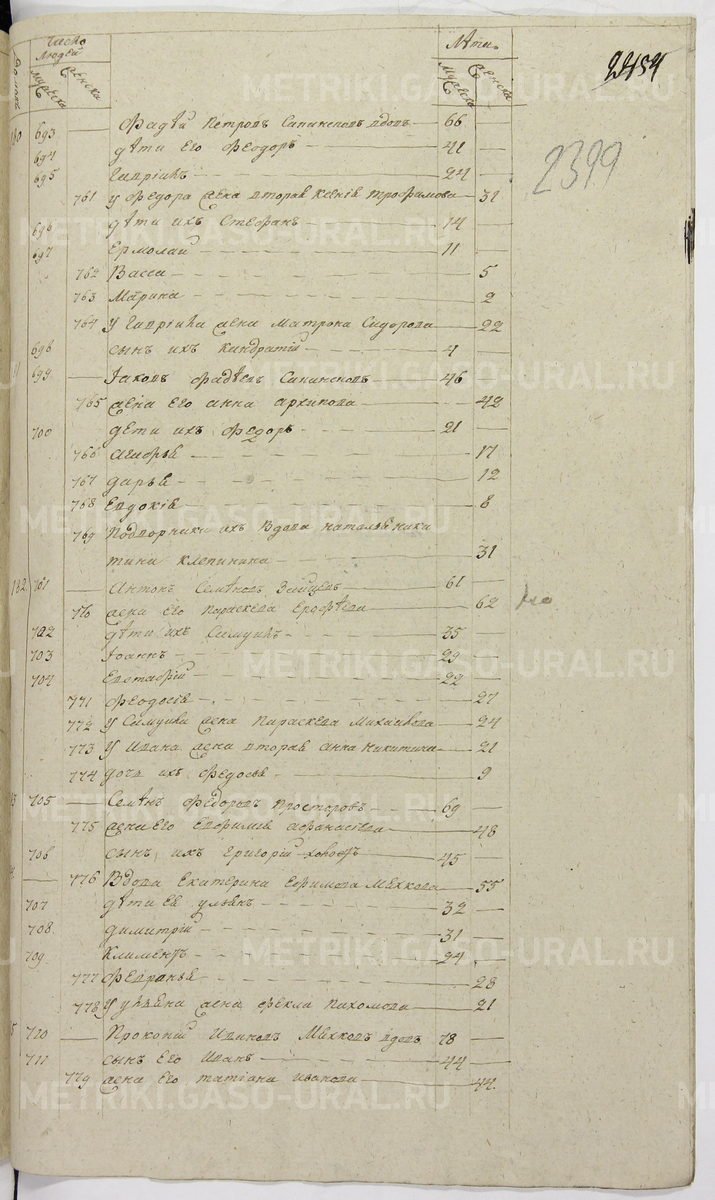 Число людей
Лѣта
мужеска женска
мужеска женска
2454
2399
180 693 Фадѣй Петровъ Сапинсковъ вдовъ 66
694 дѣти его Феодоръ 41
695 Гаврилъ 24
761 у Федора жена вторая Ксенія Трофимова 31
696 дѣти ихъ Стефанъ 14
697 Ермолай 11
762 Васса 5
763 Марина 2
764 у Гаврила жена Матрона Сидорова 22
698 сынъ ихъ Киндратій 4
699 Іаковъ Фадѣевъ Сапинсковъ 46
765 жена его Анна Архипова 42
700 дети ихъ Федоръ 21
766 17
767 Дарья 12
768 Евдокія 8
769 Подворники ихъ вдова Наталья Ники
тина Клепинина 31
182 701 Антонъ Семѣновъ 61
770 жена его Параскева Ерофѣева 62
702 дѣти ихъ 35
703 Іоаннъ 29
704 Евстафій 22
771 Феодосія 27
772 у жена Параскева Михайлова 24
773 у Ивана жена вторая Анна Никитина 21
774 дочь ихъ Федосья 9
705 Семѣнъ Федоровъ Просторовъ 69
775 жена его Евфимія Афанасіева 48
706 сынъ ихъ Григорій 45
776 Вдова Екатерина Ефимова Мѣхкова 55
707 дѣти ея Ульянъ 32
708 Димитрій 31
709 Климентъ 24
777 Февранья 28
778 у Ульяна жена Фекла Пахомова 21
710 Прокопій Ивановъ Мѣхковъ вдовъ 78
711 сынъ его Иванъ 44
779 жена его Татіана Иванова 44
METRIKI.GASO-URAL.RU